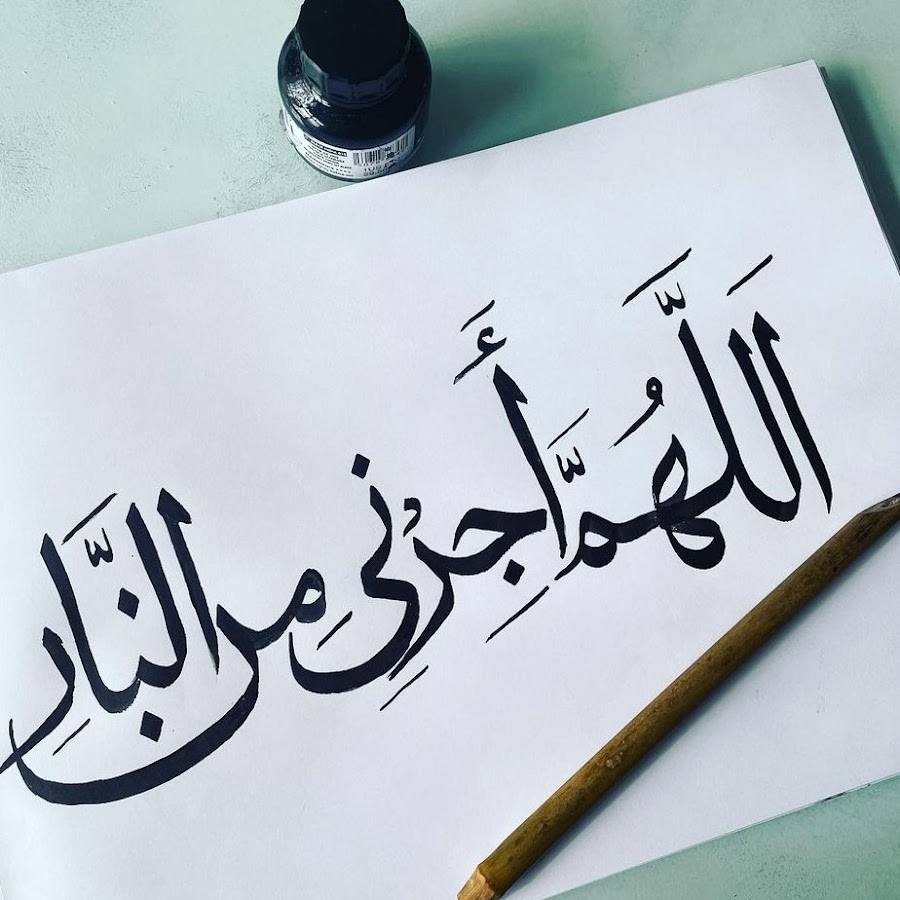 اَللَّهُمَّ أَجِرْنِي مِنَ النَّارِ